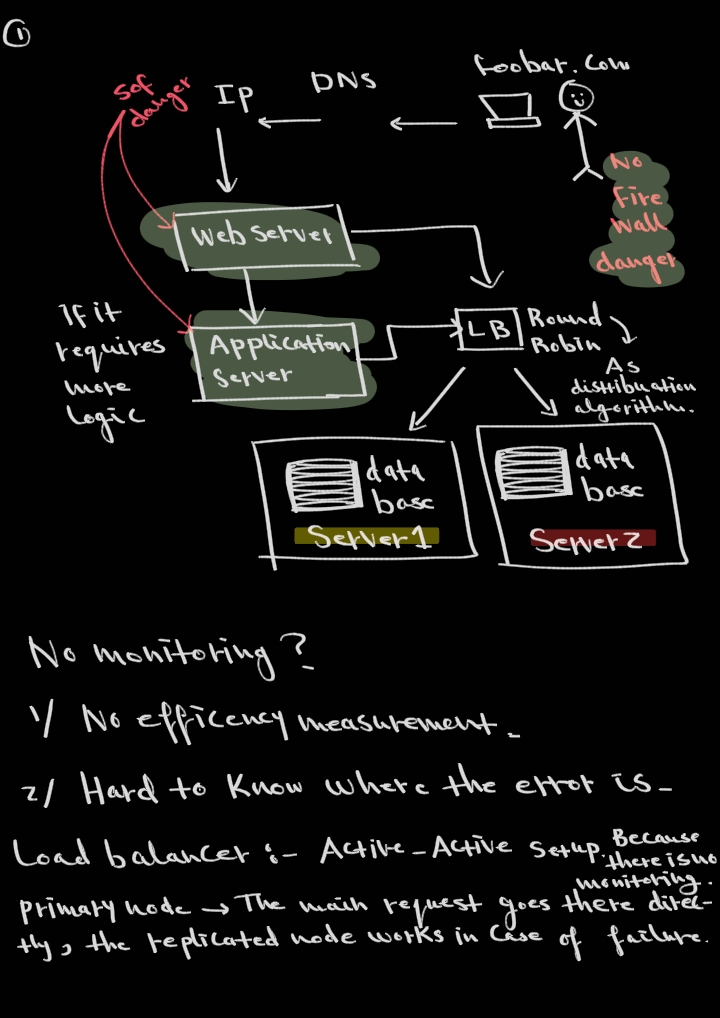 1
foobar.com
DNS
IP
SOF
danger
No
fire
wall
danger
Web Server
If it
requires
more
logic
Application
Server
LB
Round
Robin
As
distribuation
algorithm.
data
base
Server 1
data
base
Server 2
No monitoring?
1/ No efficency measurement.
2/ Hard to Know where the error is-
Load balancer :- Active-Active setup. Because
there is no
monitoring.
Primary node → The main request goes there direc-
tly, the replicated node works in case of failure.